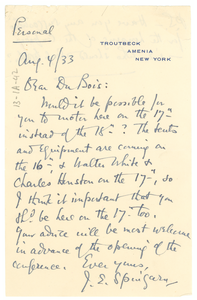 Personal
TROUTBECK
AMENIA
NEW YORK
Aug. 4/33
Dear Du Bois:
Would it be possible for
you to motor here on the 17th
instead of the 18th? The tents
and equipment are coming on
the 16th, & Walter White &
Charles Houston on the 17th, so
I think it important that you
shd. be here on the 17th too.
Your advice will be most welcome
in advance of the opening of the
conference.
Ever yours,
J. E. Spingarn